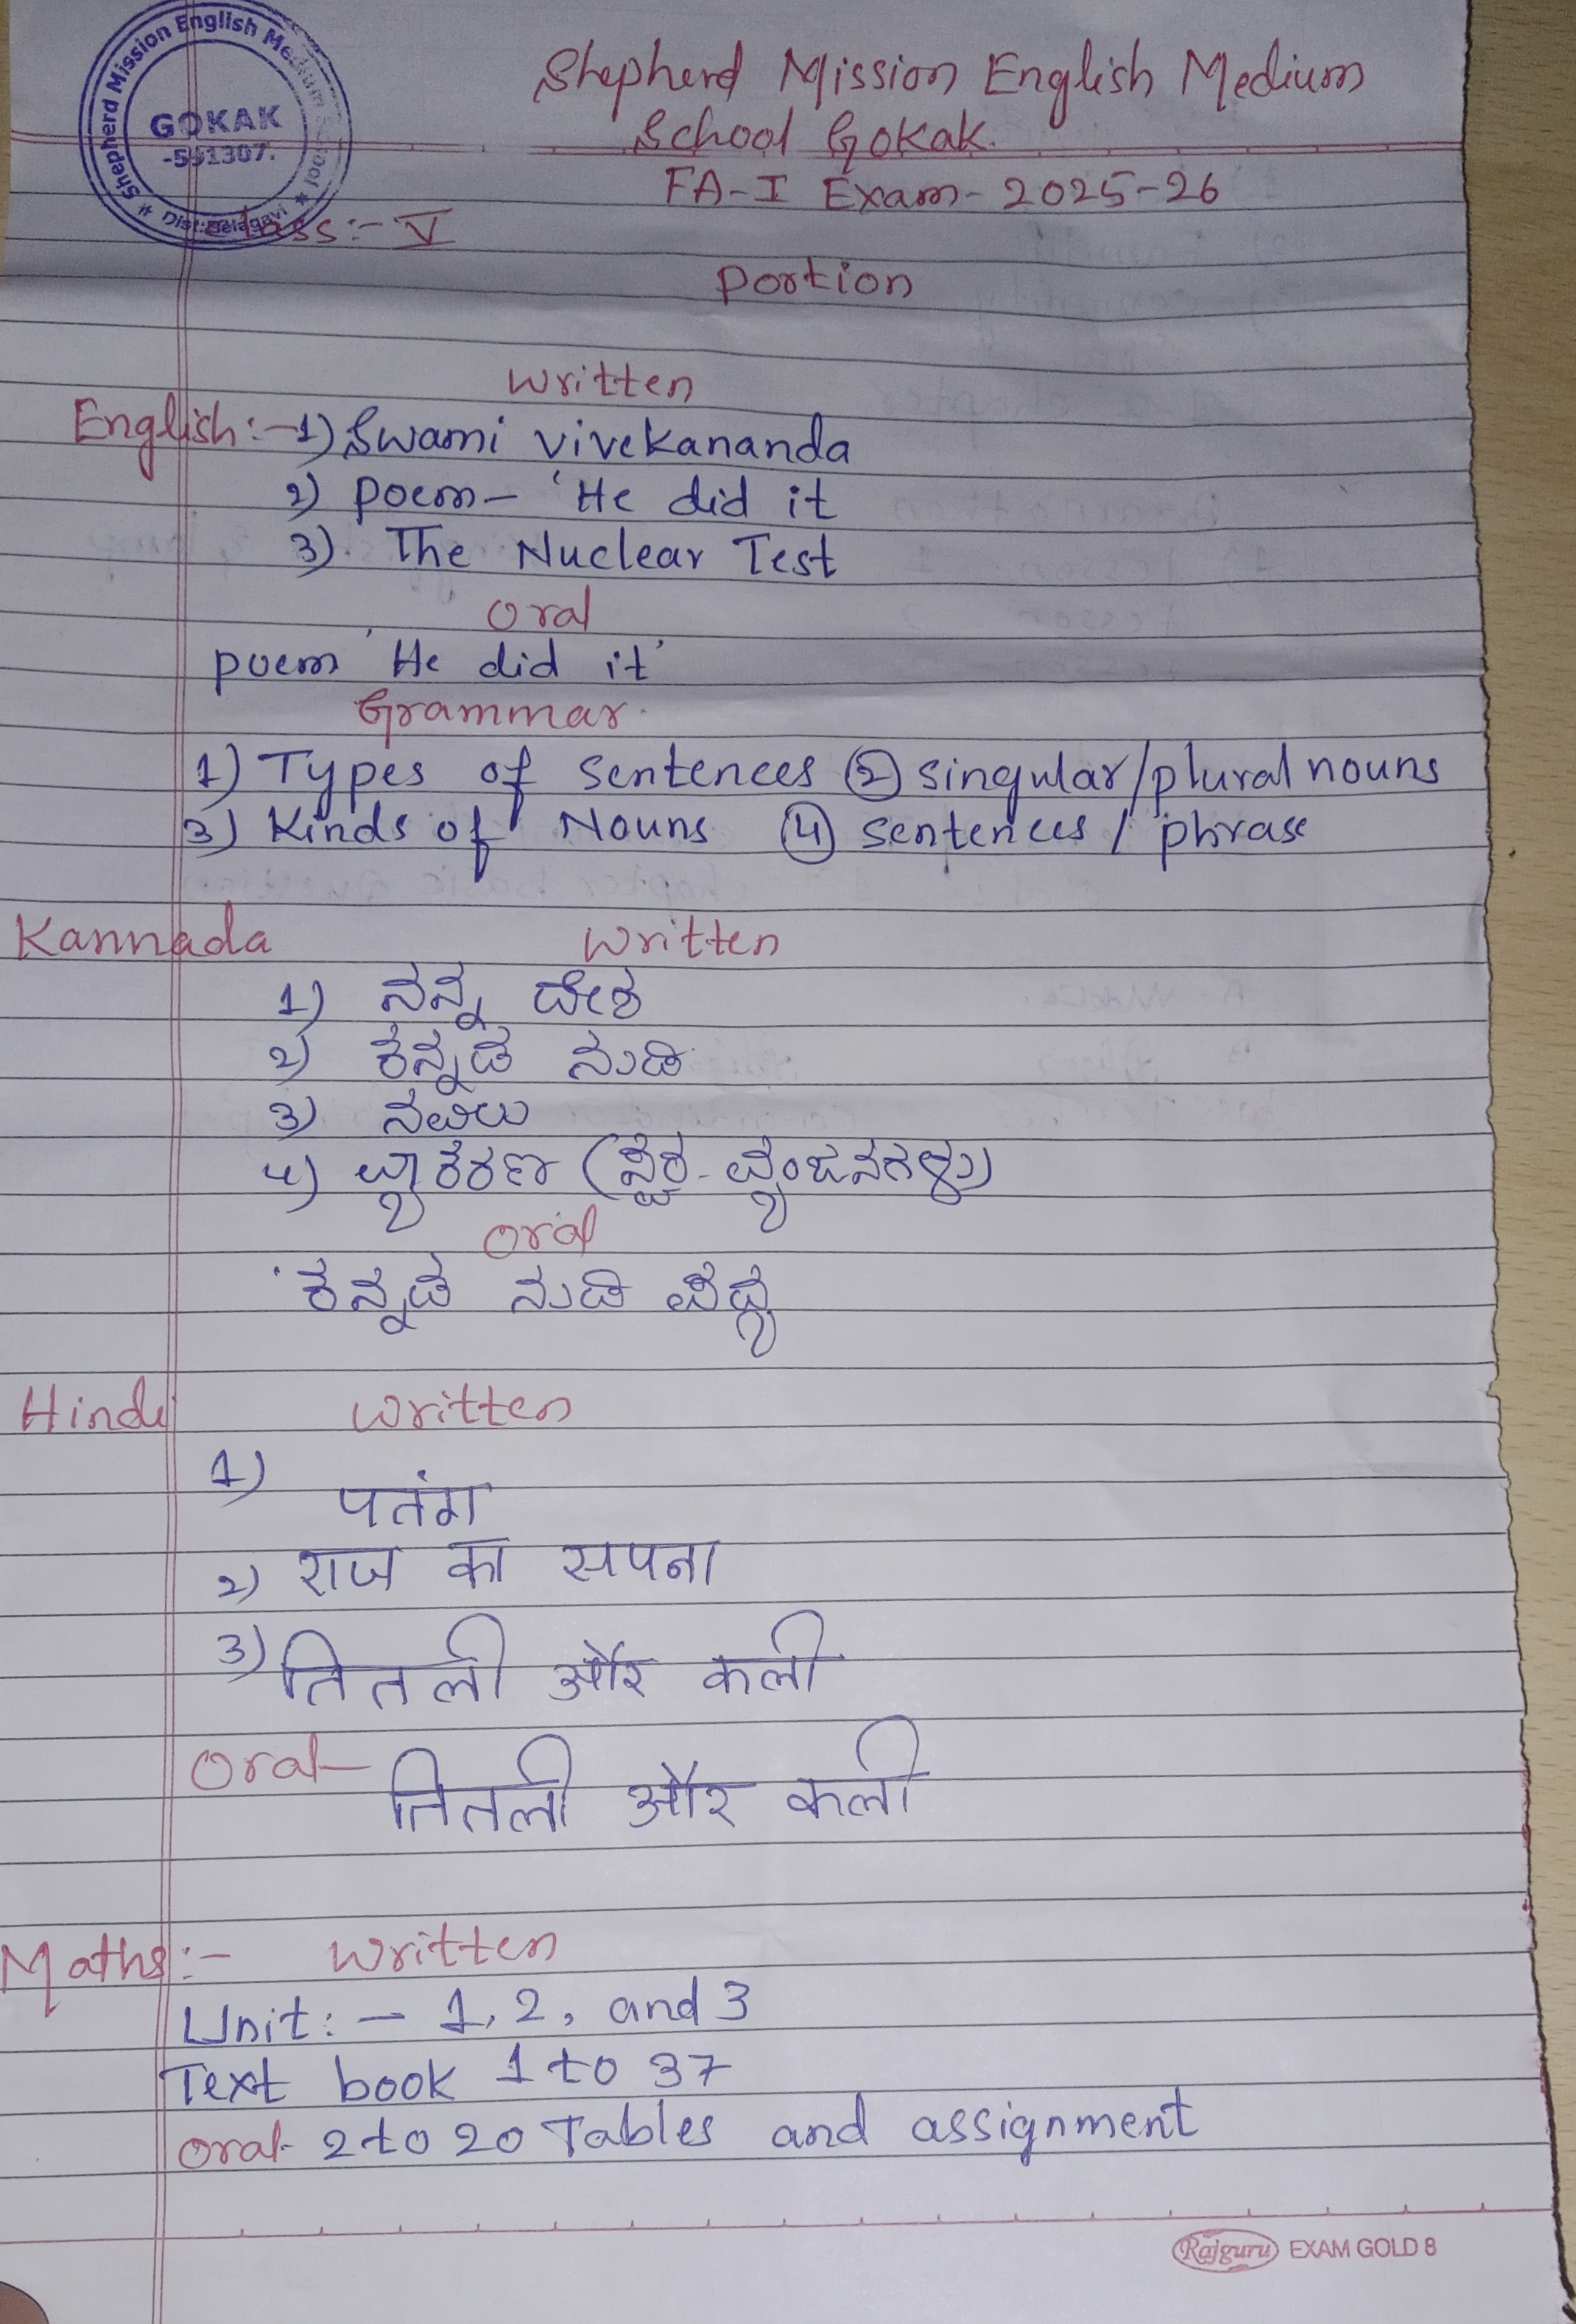 Shepherd Mission English Medium School
GOKAK
-591307.
Dist:Belagavi
Shepherd Mission English Medium
School Gokak.
FA-I Exam- 2025-26
class:- V
Portion
Written
English:- 1) Swami vivekananda
2) Poem- 'He did it
3) The Nuclear Test
Oral
poem 'He did it'
Grammar.
1) Types of sentences ② singular/plural nouns
3) Kinds of Nouns ④ sentences / phrase
Kannada Written
1) ನನ್ನ ದೇಶ
2) ಕನ್ನಡ ನುಡಿ
3) ನವಿಲು
4) ವ್ಯಾಕರಣ (ಸ್ವರ- ವ್ಯಂಜನಗಳು)
Oral
'ಕನ್ನಡ ನುಡಿ ಪದ್ಯ
Hindi Written
1) पतंग
2) राज का सपना
3) तितली और कली
Oral- तितली और कली
Maths:- Written
Unit:- 1, 2, and 3
Text book 1 to 37
Oral- 2 to 20 Tables and assignment
Rajguru EXAM GOLD 8